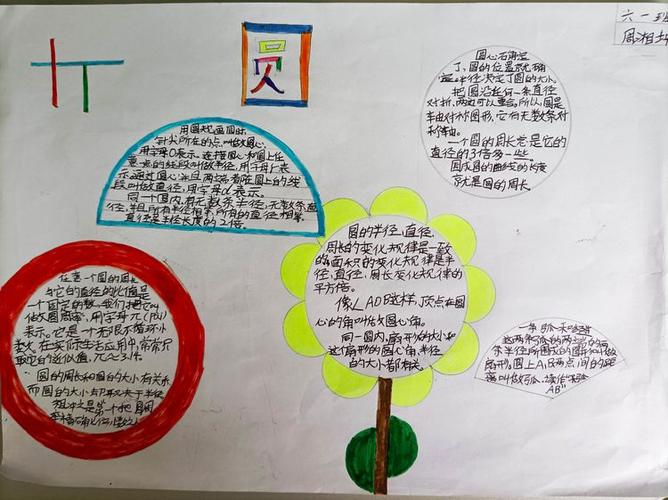 六一班
圆
圆心确定
了,圆的位置就确
定。半径决定了圆的大小。
把圆沿任何一条直径
对折,两边可以重合。所以,圆是
轴对称图形,它有无数条对
称轴。
一个圆的周长总是它的
直径的3倍多一些。
围成圆的曲线的长度
就是圆的周长。
用圆规画圆时,
针尖所在的点叫做圆心,
用字母O表示。连接圆心和圆上任
意一点的线段叫做半径,用字母r表
示。通过圆心并且两端都在圆上的线
段叫做直径,用字母d表示。
同一个圆内有无数条半径,无数条直
径,并且所有半径相等,所有的直径相等,
直径是半径长度的2倍。
圆的半径,直径,
周长的变化规律是一致
的,面积的变化规律是半
径,直径,周长变化规律的
平方倍。
像∠AOB这样,顶点在圆
心的角叫做圆心角。
同一圆内,扇形的大小和
这个扇形的圆心角,半径
的大小都有关。
任意一个圆的周长
与它的直径的比值是
一个固定的数,我们把它叫
做圆周率,用字母π(pài)
表示。它是一个无限不循环小
数,在实际生活应用中,常常只
取它的近似值,π≈3.14。
圆的周长和圆的大小有关系,
而圆的大小取决于半径
祖冲之是第一个把圆周
一条弧和经过
这两条弧的两端的两
条半径所围成的图形叫做
扇形,圆上A,B两点间的距
离叫做弧,读作“弧
AB”